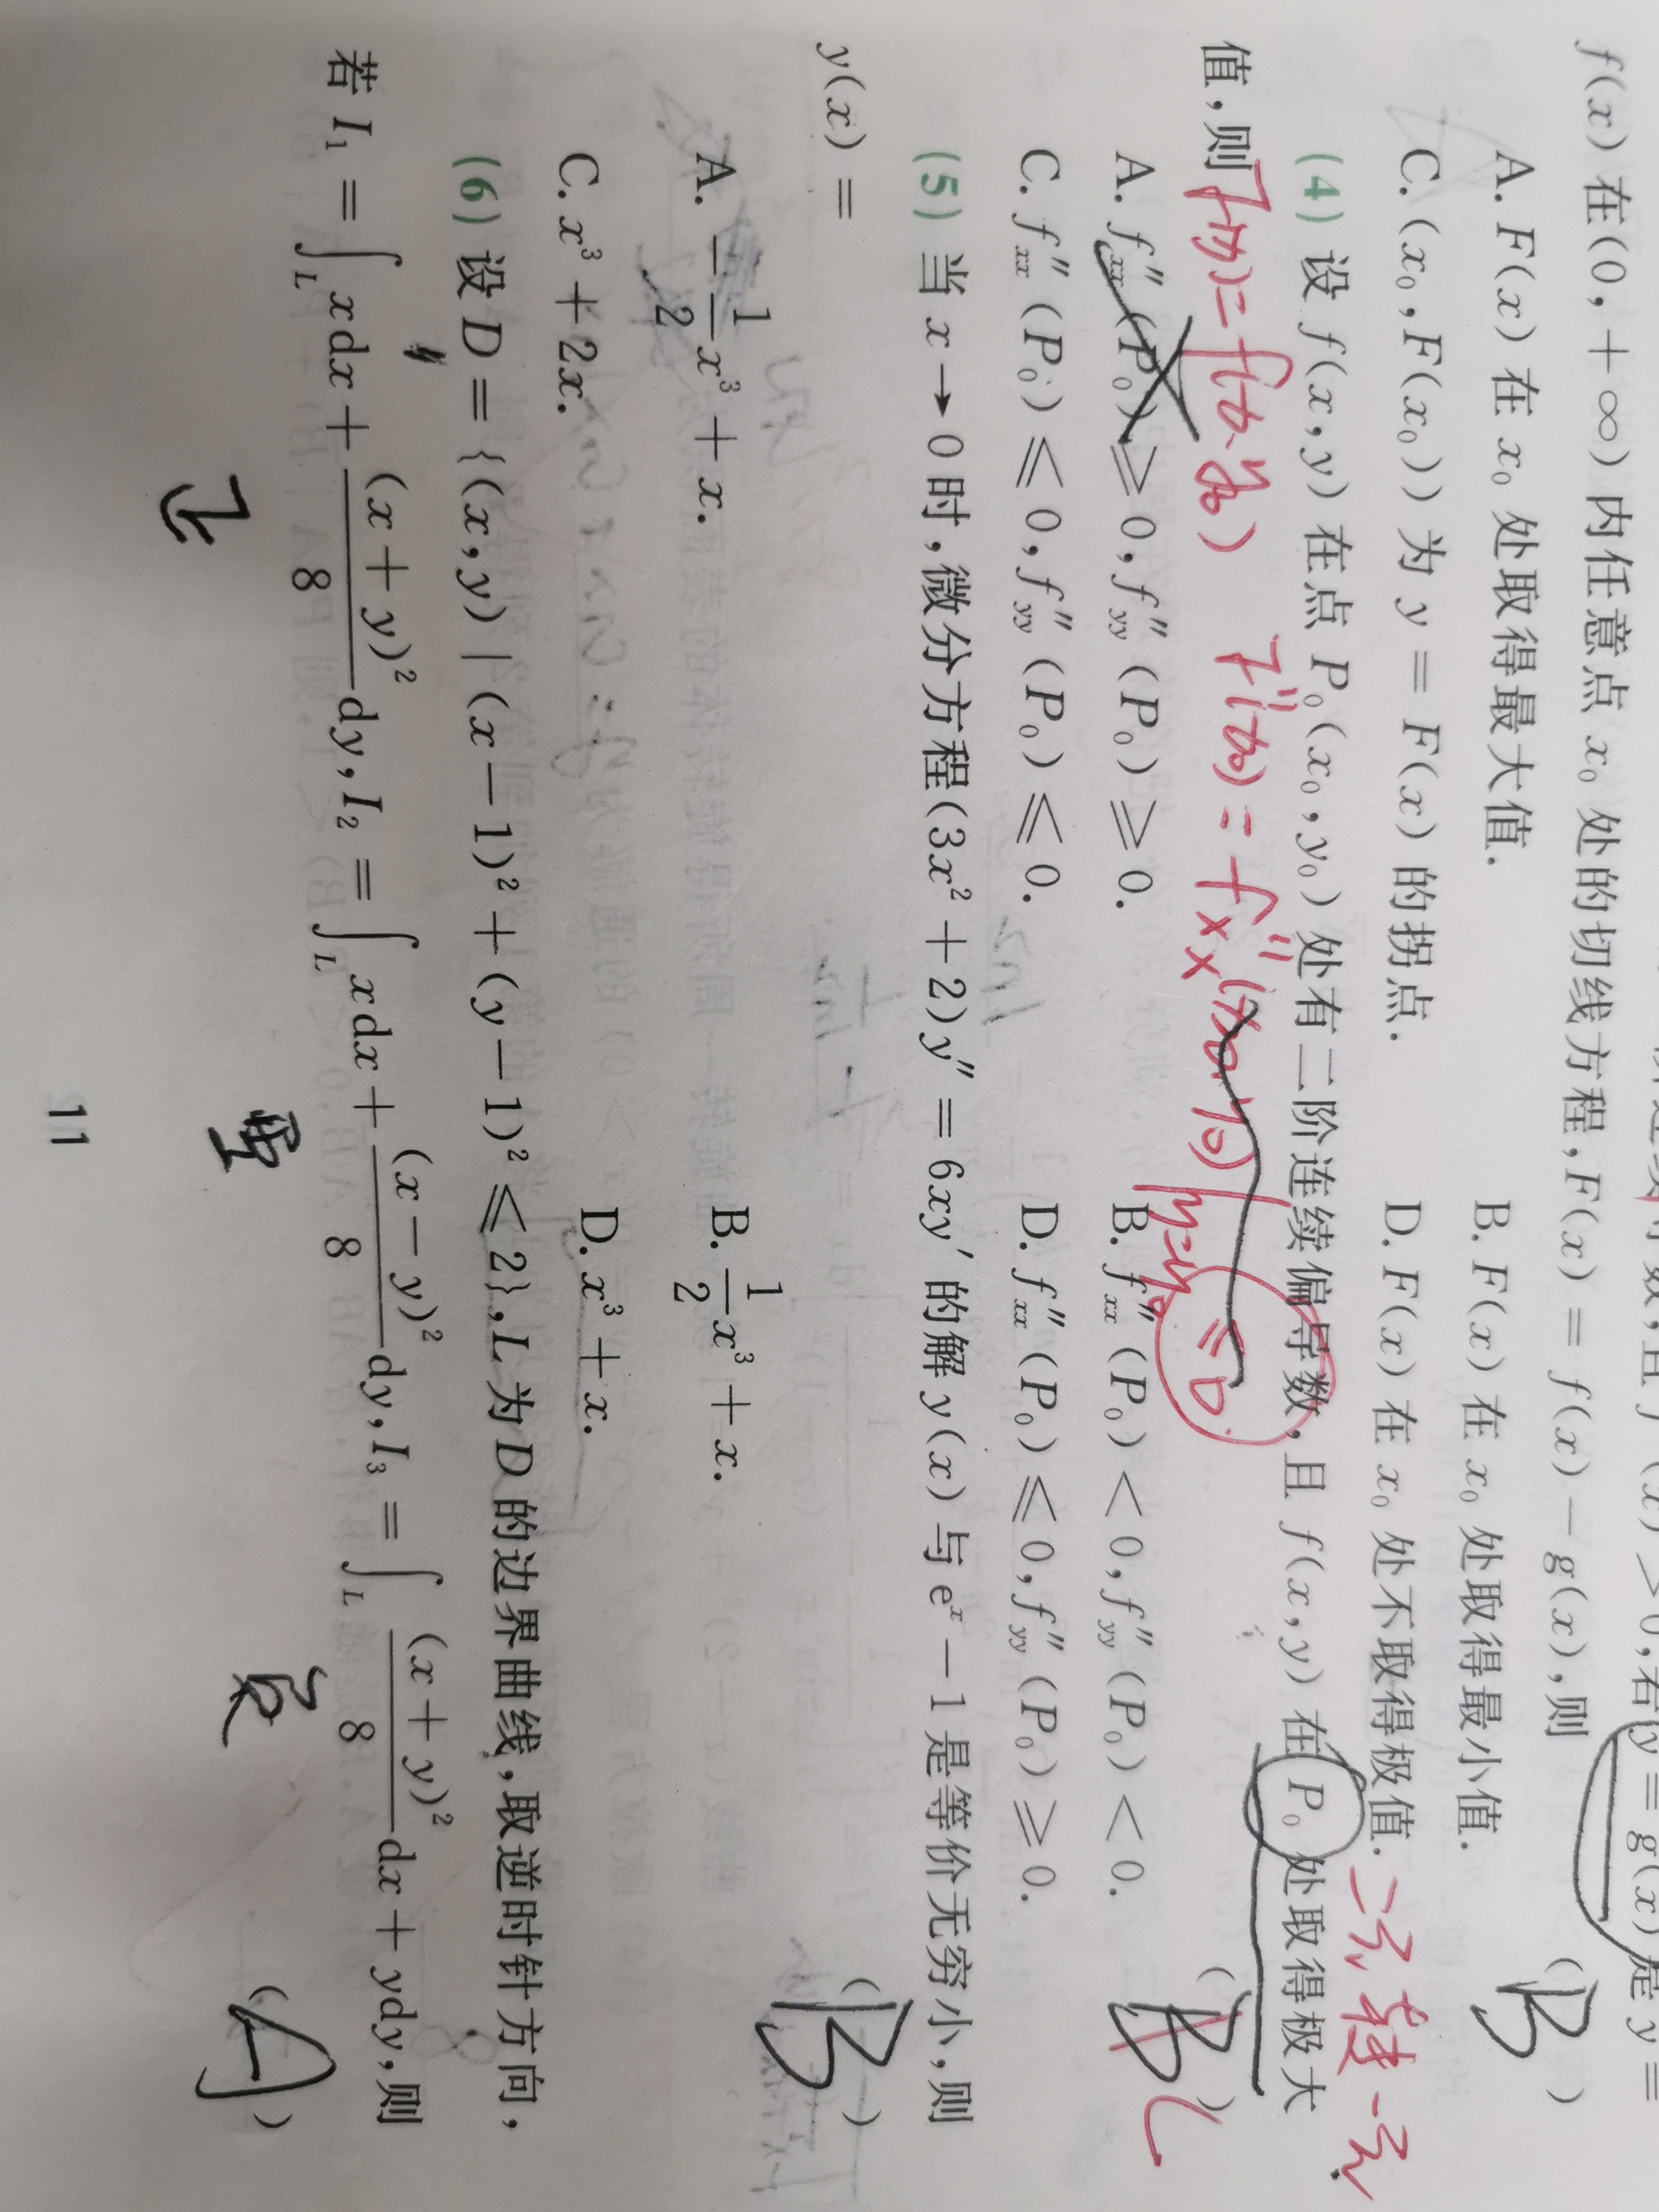 f(x) 在(0,+∞) 内任意点 x₀ 处的切线方程,F(x) = f(x) − g(x),则
(B)
A. F(x) 在 x₀ 处取得最大值.
B. F(x) 在 x₀ 处取得最小值.
C. (x₀,F(x₀)) 为 y = F(x) 的拐点.
D. F(x) 在 x₀ 处不取得极值.
二元转一元
(4) 设 f(x,y) 在点 P₀(x₀,y₀) 处有二阶连续偏导数,且 f(x,y) 在 P₀ 处取得极大
值,则
(B) C
A. f″ₓₓ(P₀) ⩾ 0,f″yy(P₀) ⩾ 0.
B. f″ₓₓ(P₀) < 0,f″yy(P₀) < 0.
C. f″ₓₓ(P₀) ⩽ 0,f″yy(P₀) ⩽ 0.
D. f″ₓₓ(P₀) ⩽ 0,f″yy(P₀) ⩾ 0.
(5) 当 x → 0 时,微分方程(3x² + 2)y″ = 6xy′ 的解 y(x) 与 eˣ − 1 是等价无穷小,则
y(x) =
(B)
A. −1/2 x³ + x.
B. 1/2 x³ + x.
C. x³ + 2x.
D. x³ + x.
(6) 设 D = {(x,y) | (x − 1)² + (y − 1)² ⩽ 2},L 为 D 的边界曲线,取逆时针方向,
若 I₁ = ∫_L xdx + (x + y)²/8 dy,I₂ = ∫_L xdx + (x − y)²/8 dy,I₃ = ∫_L (x + y)²/8 dx + ydy,则
正
负
(A)
11